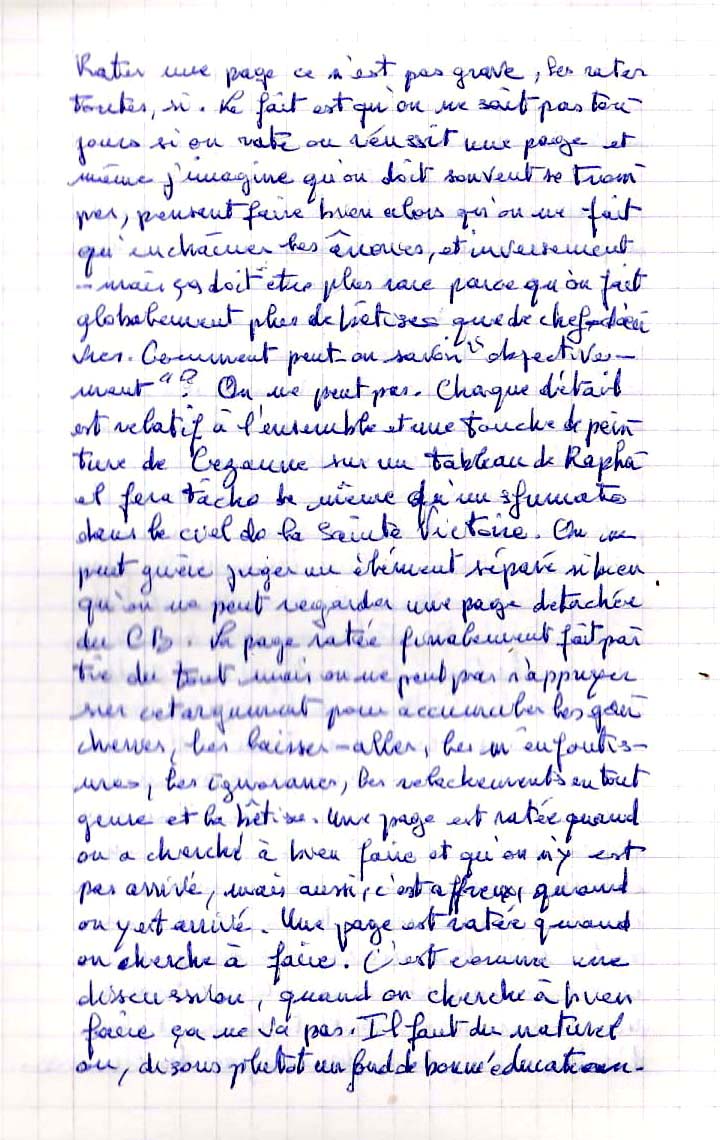 Rater une page ce n'est pas grave, les rater
toutes, si. Le fait est qu'on ne sait pas tou
jours si on rate ou réussit une page et
même j'imagine qu'on doit souvent se trom
per, pensant faire bien alors qu'on ne fait
qu'enchaîner les âneries, et inversement
- mais ça doit être plus rare parce qu'on fait
globalement plus de bêtises que de chefs d'œu
vres. Comment peut-on savoir "objective-
ment"? On ne peut pas. Chaque détail
est relatif à l'ensemble et une touche de pein
ture de Cezanne sur un tableau de Rapha
el fera tache de même qu'un sfumato
dans le ciel de la Sainte Victoire. On ne
peut guère juger un élément séparé si bien
qu'on ne peut regarder une page detachée
du CB. La page ratée finalement fait par
tie du tout mais on ne peut pas s'appuyer
sur cet argument pour accumuler les gau
cheries, les laisser-aller, les m'en foutis-
mes, les ignorances, les relachements en tout
genre et la bêtise. Une page est ratée quand
on a cherché à bien faire et qu'on n'y est
pas arrivé, mais aussi, c'est affreux, quand
on y est arrivé. Une page est ratée quand
on cherche à faire. C'est comme une
discussion, quand on cherche à bien
faire ça ne va pas. Il faut du naturel
ou, disons plutôt un fond de bonne éducation.